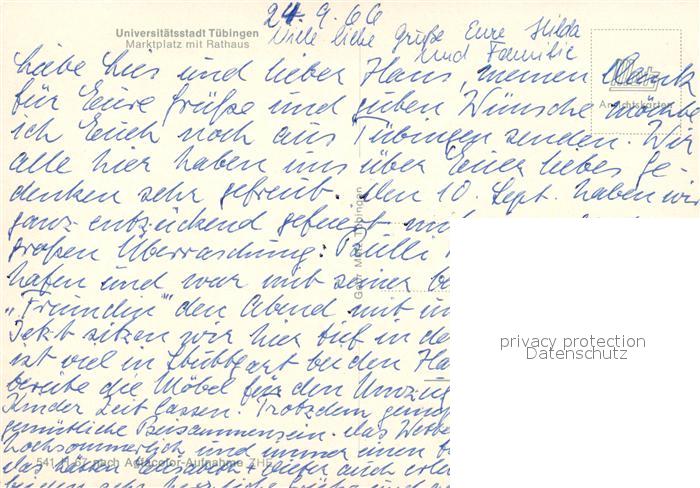 24.9.66
Viele liebe Grüße Eure Hilda
und Familie
Universitätsstadt Tübingen
Marktplatz mit Rathaus
Liebe Lies und lieber Hans, meinen Dank
für Eure Grüße und guten Wünsche möchte
ich Euch noch aus Tübingen senden. Wir
alle hier haben uns über Euer liebes Ge-
denken sehr gefreut. Den 10. Sept. haben wir
ganz entzückend gefeiert mit
großen Überraschung:
hafen und war mit seiner
"Freundin" den Abend mit
Jetzt sitzen wir hier tief in
ist viel in Stuttgart bei den
bereite die Möbel für den Umzug
Kinder Zeit lassen. Trotzdem
gemütliche Beisammensein. Das
hochsommerlich und immer einen
das lassen Elisabeth
Ansichtskarten
Gebr. Metz Tübingen
privacy protection
Datenschutz
541 nach Agfacolor-Aufnahme ZHB